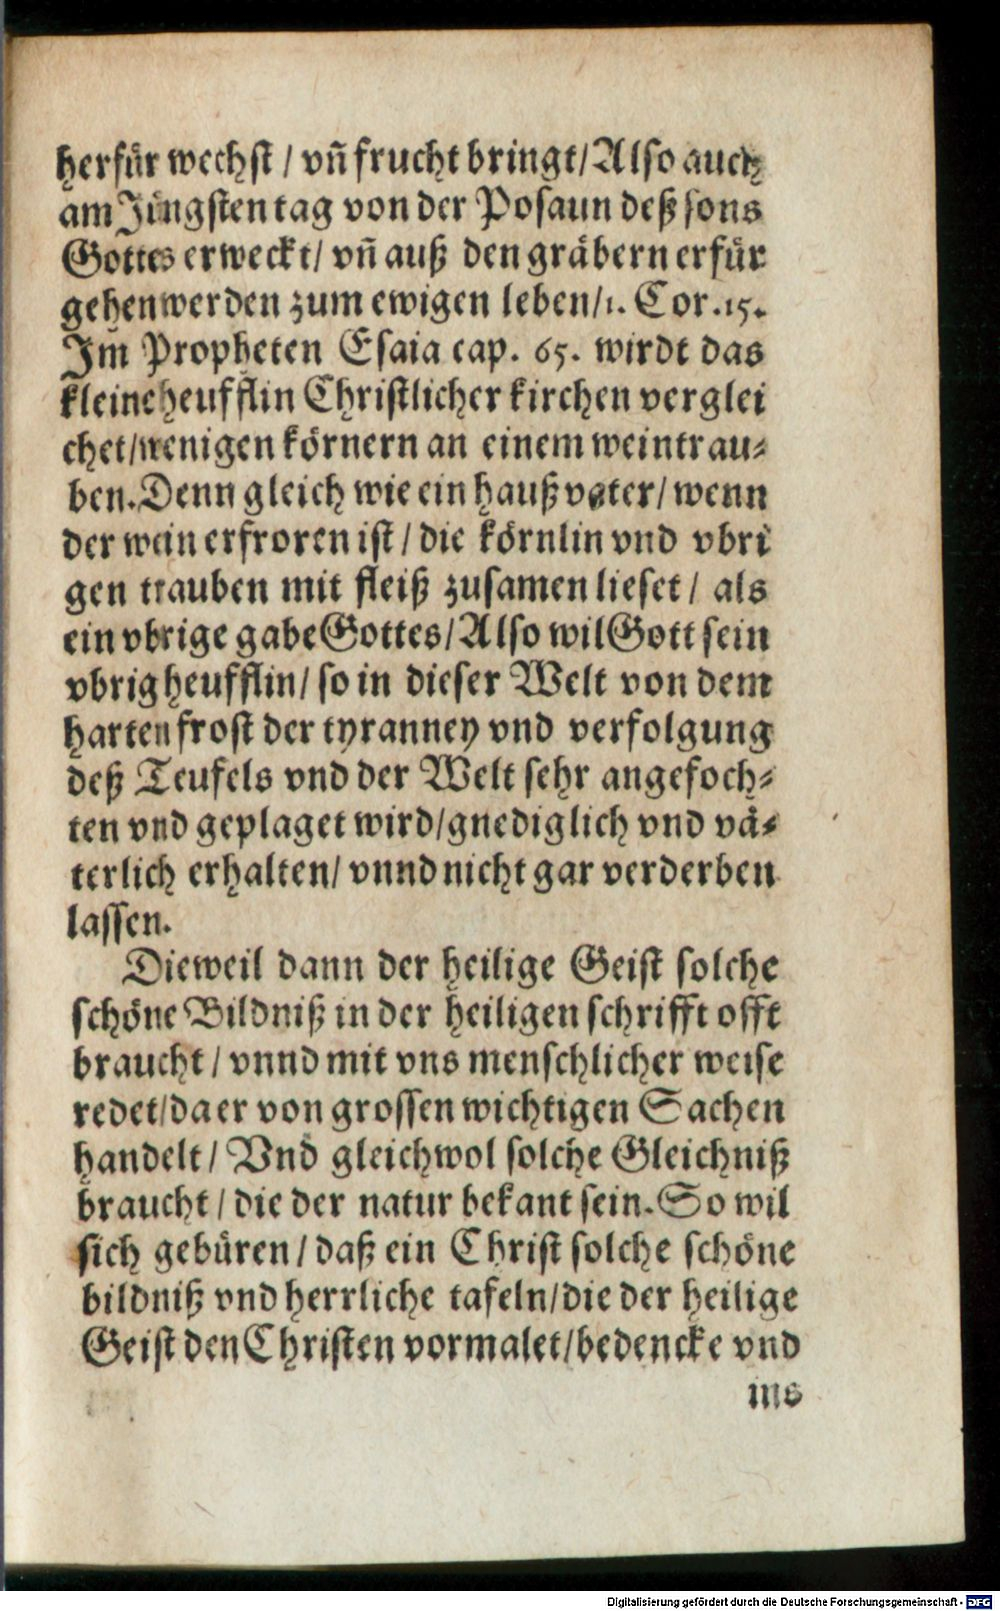 herfür wechst / vñ frucht bringt / Also auch
am Jüngsten tag von der Posaun deß sons
Gottes erweckt / vñ auß den gräbern erfür
gehen werden zum ewigen leben / 1. Cor. 15.
Jm Propheten Esaia cap. 65. wirdt das
kleine heufflin Christlicher kirchen verglei
chet / wenigen körnern an einem weintrau⸗
ben. Denn gleich wie ein haußvater / wenn
der wein erfroren ist / die körnlin vnd vbri
gen trauben mit fleiß zusamen lieset / als
ein vbrige gabe Gottes / Also wil Gott sein
vbrig heufflin / so in dieser Welt von dem
harten frost der tyranney vnd verfolgung
deß Teufels vnd der Welt sehr angefoch⸗
ten vnd geplaget wird / gnediglich vnd vä⸗
terlich erhalten / vnnd nicht gar verderben
lassen.
Dieweil dann der heilige Geist solche
schöne Bildniß in der heiligen schrifft offt
braucht / vnnd mit vns menschlicher weise
redet / da er von grossen wichtigen Sachen
handelt / Vnd gleichwol solche Gleichniß
braucht / die der natur bekant sein. So wil
sich gebüren / daß ein Christ solche schöne
bildniß vnd herrliche tafeln / die der heilige
Geist den Christen vormalet / bedencke vnd
ins
Digitalisierung gefördert durch die Deutsche Forschungsgemeinschaft - DFG